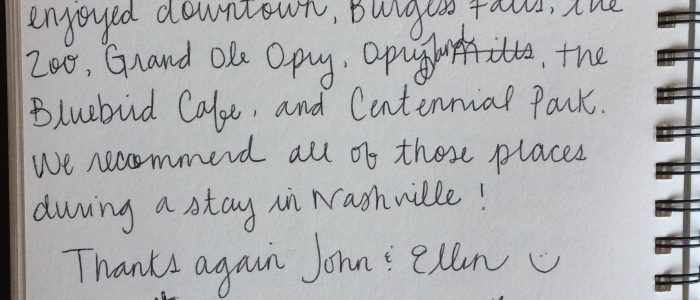 enjoyed downtown, Burgess Falls, the
Zoo, Grand Ole Opry, Opryland Mills, the
Bluebird Cafe, and Centennial Park.
We recommend all of those places
during a stay in Nashville!
Thanks again John & Ellen